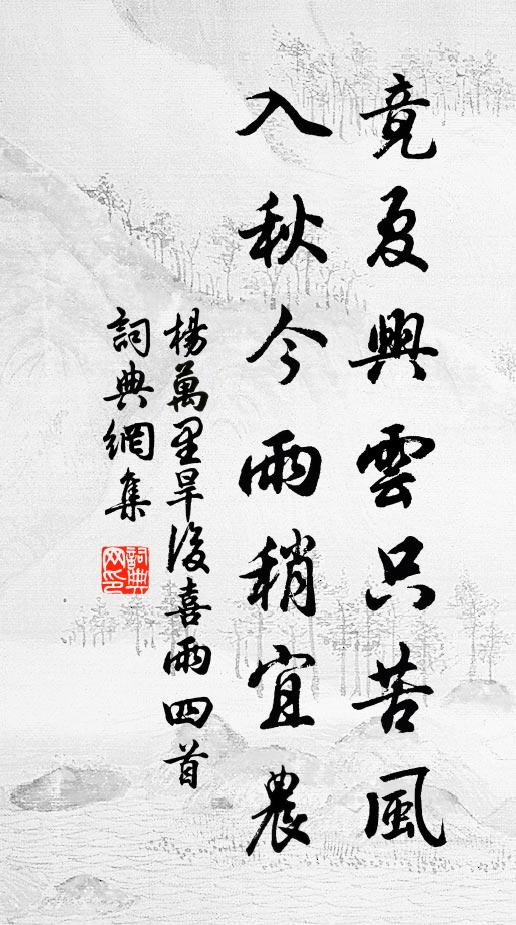 竟夏興雲只苦風
入秋今雨稍宜農
楊萬里旱後喜雨四首
詞典網集
詞典网印